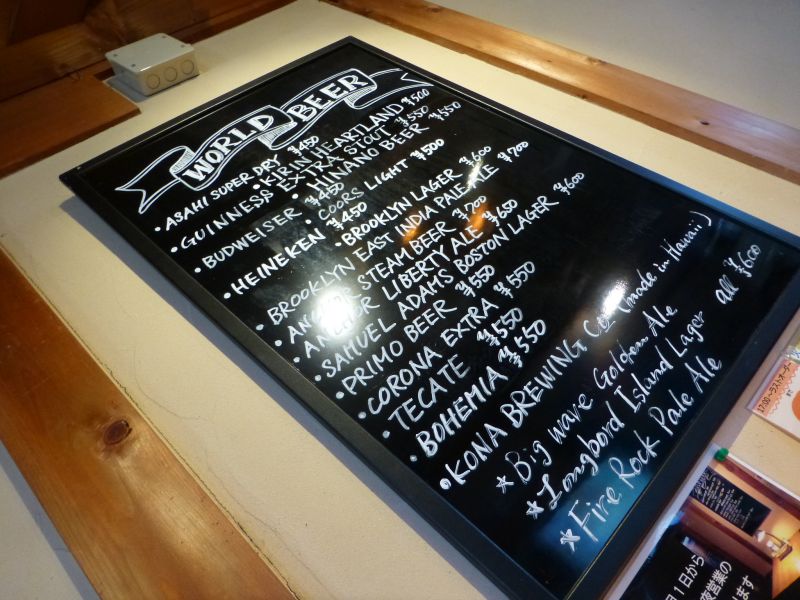 WORLD BEER
• ASAHI SUPER DRY ¥450
• KIRIN HEARTLAND ¥500
• GUINNESS EXTRA STOUT ¥550
• HINANO BEER ¥550
• BUDWEISER ¥450
COORS LIGHT ¥500
• HEINEKEN ¥450
• BROOKLYN LAGER ¥600
• BROOKLYN EAST INDIA PALE ALE ¥700
• ANCHOR STEAM BEER ¥700
• ANCHOR LIBERTY ALE ¥650
• SAMUEL ADAMS BOSTON LAGER ¥600
• PRIMO BEER ¥550
• CORONA EXTRA ¥550
• TECATE ¥550
• BOHEMIA ¥550
• KONA BREWING Co. (made in Hawaii)
* Big wave Golden Ale
* Longbord Island Lager all ¥600
* Fire Rock Pale Ale
17:00~ラストオーダー
月1日から
夜営業の
ます